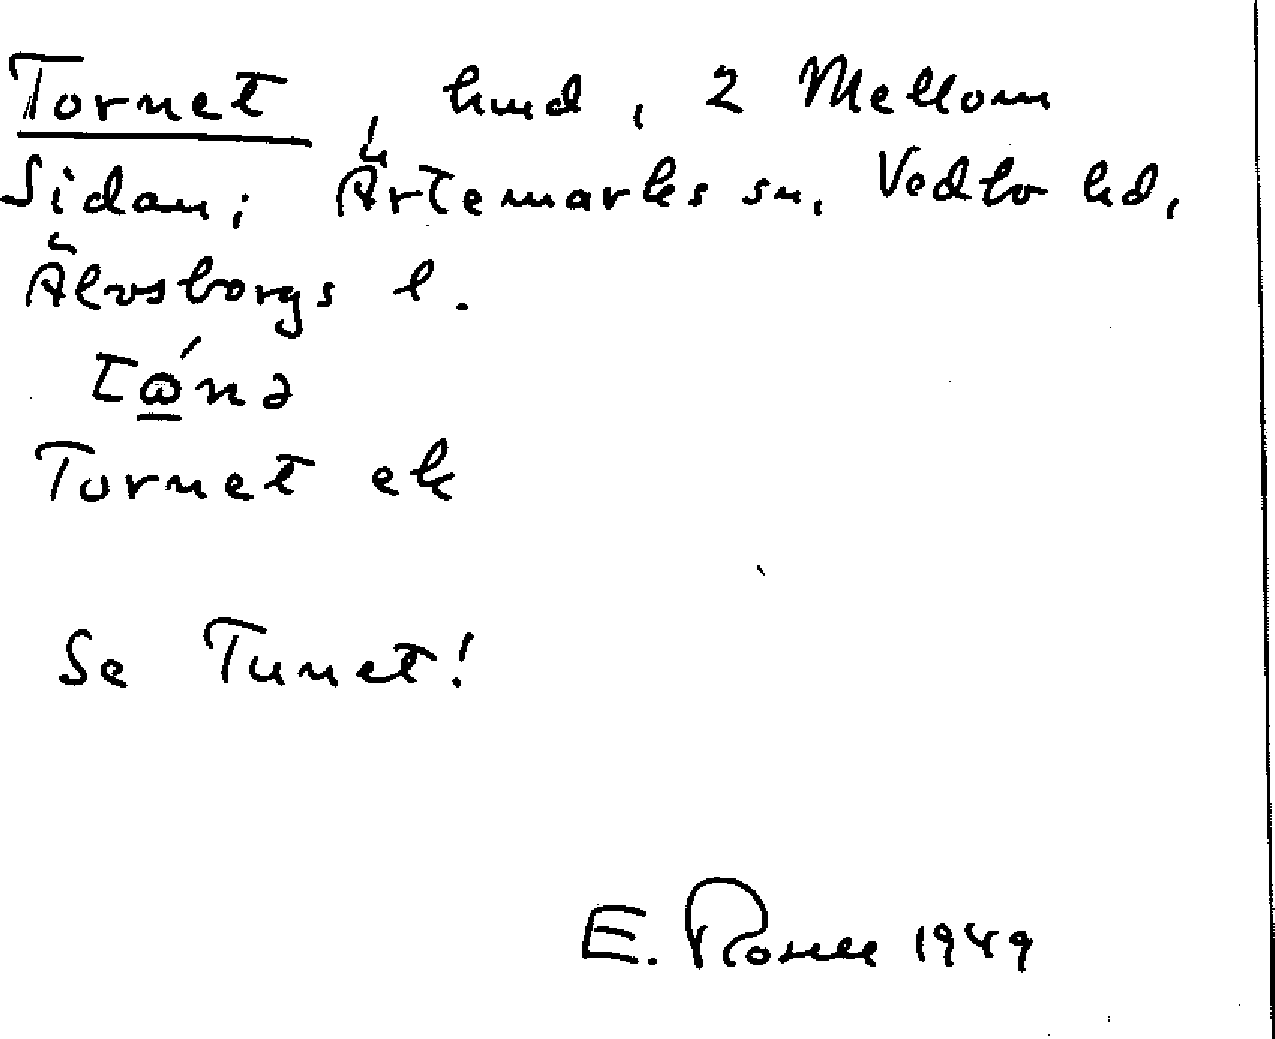 Tornet, hmd, 2 Mellom
Sidan; Ärtemarks sn, Vedbo hd,
Älvsborgs l.
tώ̲nə
Tornet ek
Se Tunet!
E. 1949